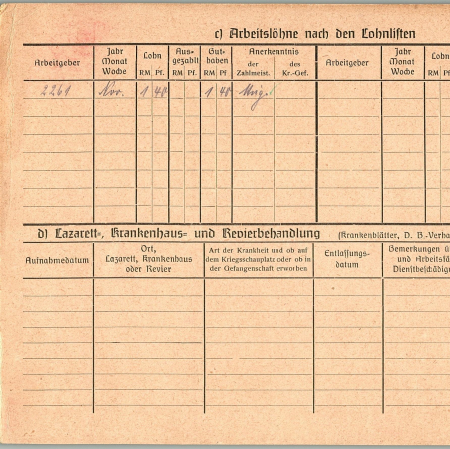 c) Arbeitslöhne nach den Lohnlisten
Arbeitgeber Jahr Monat Woche Lohn Aus- gezahlt Gut- haben Anerkenntnis Arbeitgeber Jahr Monat Woche Lohn
RM Pf. RM Pf. RM Pf. der Zahlmeist. des Kr.-Gef. RM Pf
2261 Nov. 1 40 1 40
d) Lazarett-, Krankenhaus- und Revierbehandlung (Krankenblätter, D. B.-Verba
Aufnahmedatum
Ort,
Lazarett, Krankenhaus
oder Revier
Art der Krankheit und ob auf
dem Kriegsschauplatz oder ob in
der Gefangenschaft erworben
Entlassungs-
datum
Bemerkungen ü
und Arbeitsfä
Dienstbeschädig